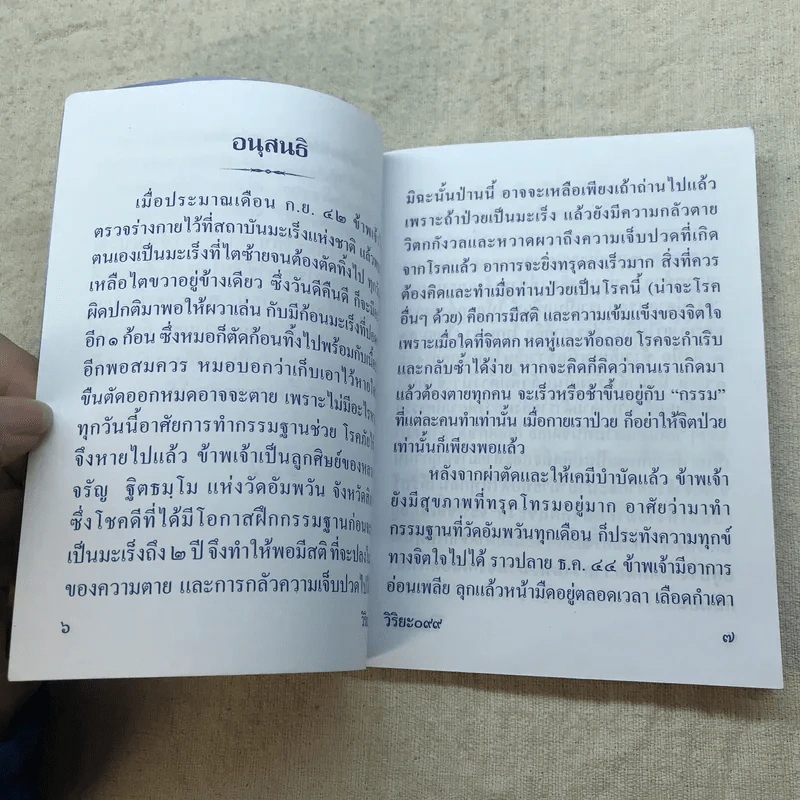 อนุสนธิ
เมื่อประมาณเดือน ก.ย. ๔๒
ตรวจร่างกายไว้ที่สถาบันมะเร็งแห่งชาติ
ตนเองเป็นมะเร็งที่ไตซ้ายจนต้องตัดทิ้งไป
เหลือไตขวาอยู่ข้างเดียว ซึ่งวันดีคืนดี ก็จะ
ผิดปกติมาพอให้ผวาเล่น กับมีก้อนมะเร็งที่
อีก ๑ ก้อน ซึ่งหมอก็ตัดก้อนทิ้งไปพร้อมกับ
อีกพอสมควร หมอบอกว่าเก็บเอาไว้
ขืนตัดออกหมดอาจจะตาย เพราะไม่มี
ทุกวันนี้อาศัยการทำกรรมฐานช่วย
จึงหายไปแล้ว ข้าพเจ้าเป็นลูกศิษย์ของ
จรัญ ฐิตธมฺโม แห่งวัดอัมพวัน จังหวัด
ซึ่งโชคดีที่ได้มีโอกาสฝึกกรรมฐานก่อน
เป็นมะเร็งถึง ๒ ปี จึงทำให้พอมีสติ
ของความตาย และการกลัวความเจ็บปวด
๖
มิฉะนั้นป่านนี้ อาจจะเหลือเพียงเถ้าถ่านไปแล้ว
เพราะถ้าป่วยเป็นมะเร็ง แล้วยังมีความกลัวตาย
วิตกกังวลและหวาดผวาถึงความเจ็บปวดที่เกิด
จากโรคแล้ว อาการจะยิ่งทรุดลงเร็วมาก สิ่งที่ควร
ต้องคิดและทำเมื่อท่านป่วยเป็นโรคนี้ (น่าจะโรค
อื่นๆ ด้วย) คือการมีสติ และความเข้มแข็งของจิตใจ
เพราะเมื่อใดที่จิตตก หดหู่และท้อถอย โรคจะกำเริบ
และกลับซ้ำได้ง่าย หากจะคิดก็คิดว่าคนเราเกิดมา
แล้วต้องตายทุกคน จะเร็วหรือช้าขึ้นอยู่กับ “กรรม”
ที่แต่ละคนทำเท่านั้น เมื่อกายเราป่วย ก็อย่าให้จิตป่วย
เท่านั้นก็เพียงพอแล้ว
หลังจากผ่าตัดและให้เคมีบำบัดแล้ว ข้าพเจ้า
ยังมีสุขภาพที่ทรุดโทรมอยู่มาก อาศัยว่ามาทำ
กรรมฐานที่วัดอัมพวันทุกเดือน ก็ประทังความทุกข์
ทางจิตใจไปได้ ราวปลาย ธ.ค. ๔๔ ข้าพเจ้ามีอาการ
อ่อนเพลีย ลุกแล้วหน้ามืดอยู่ตลอดเวลา เลือดกำเดา
วิริยะ๐๙๙
๗